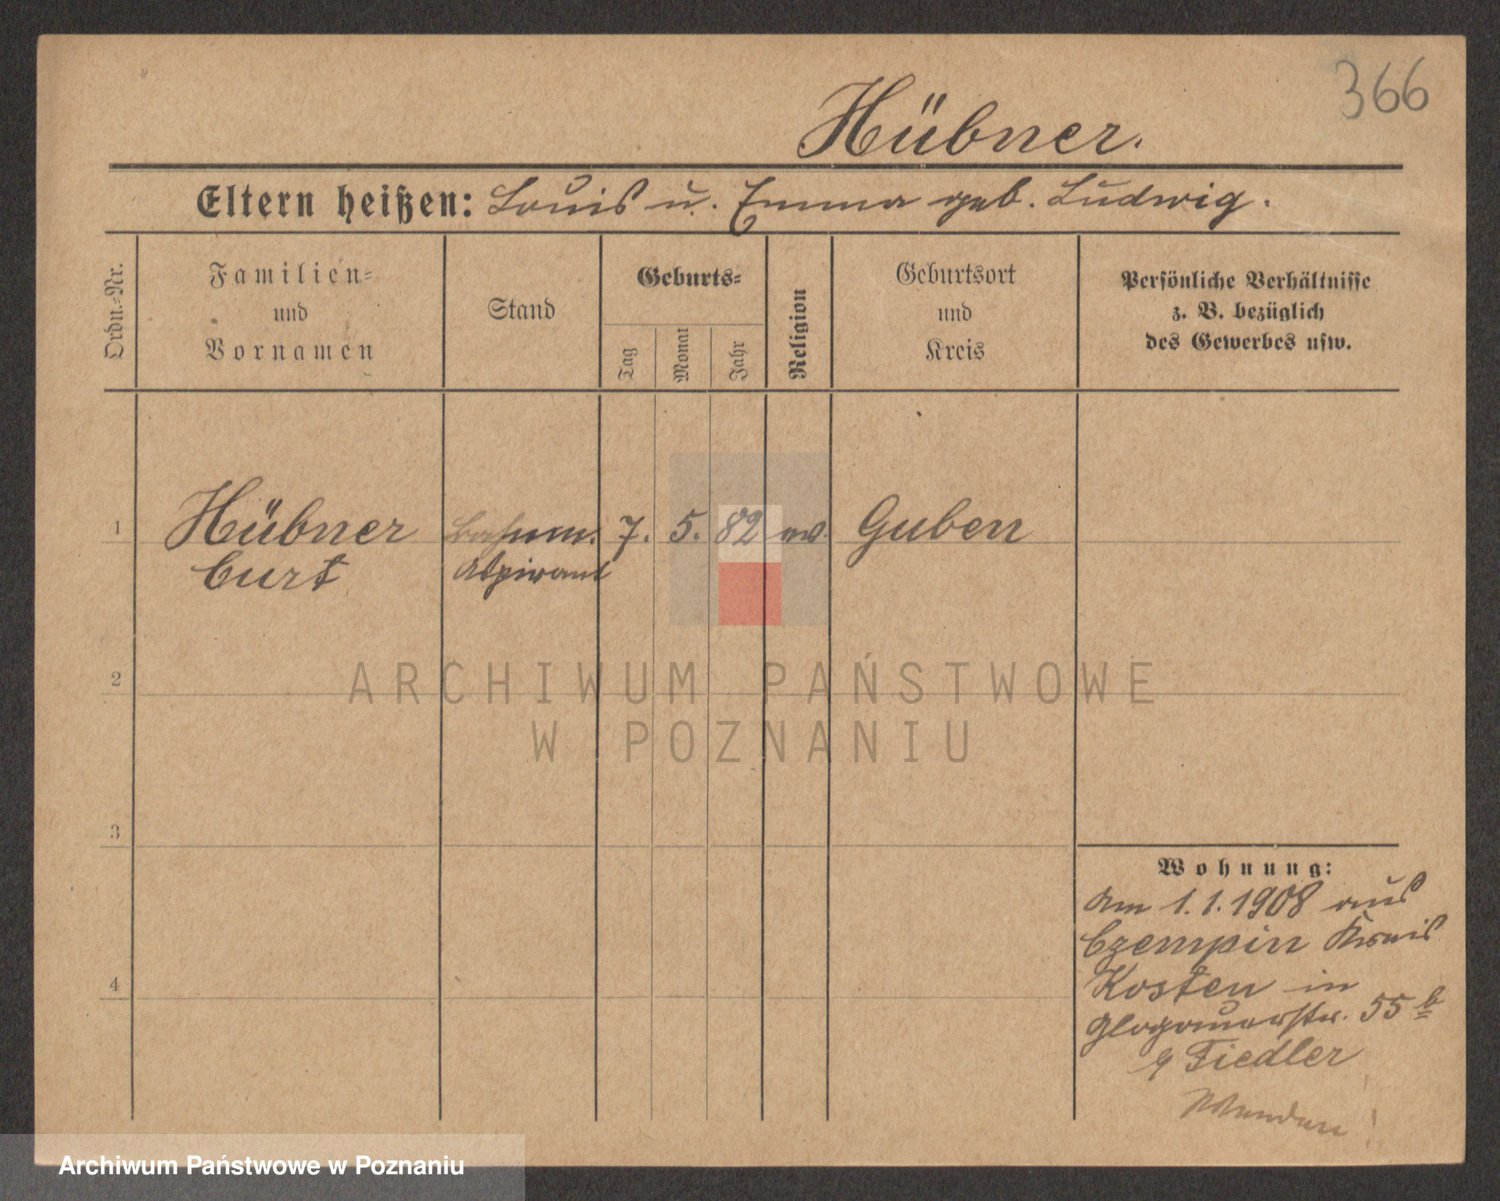 366
Hübner.
Eltern heißen: Louis u. Emma geb. Ludwig.
Ordn.=Nr.
Familien=
und
Vornamen
Stand
Geburts=
Tag
Monat
Jahr
Religion
Geburtsort
und
Kreis
Persönliche Verhältnisse
z. B. bezüglich
des Gewerbes usw.
1 Hübner 7. 5. 82 ev. Guben
Curt Aspirant
2
ARCHIWUM PAŃSTWOWE
W POZNANIU
3
4
Wohnung:
Am 1.1.1908 aus
Czempin Kreis
Kosten in
Glogauerstr. 55 b
Fiedler
Wenden!
Archiwum Państwowe w Poznaniu